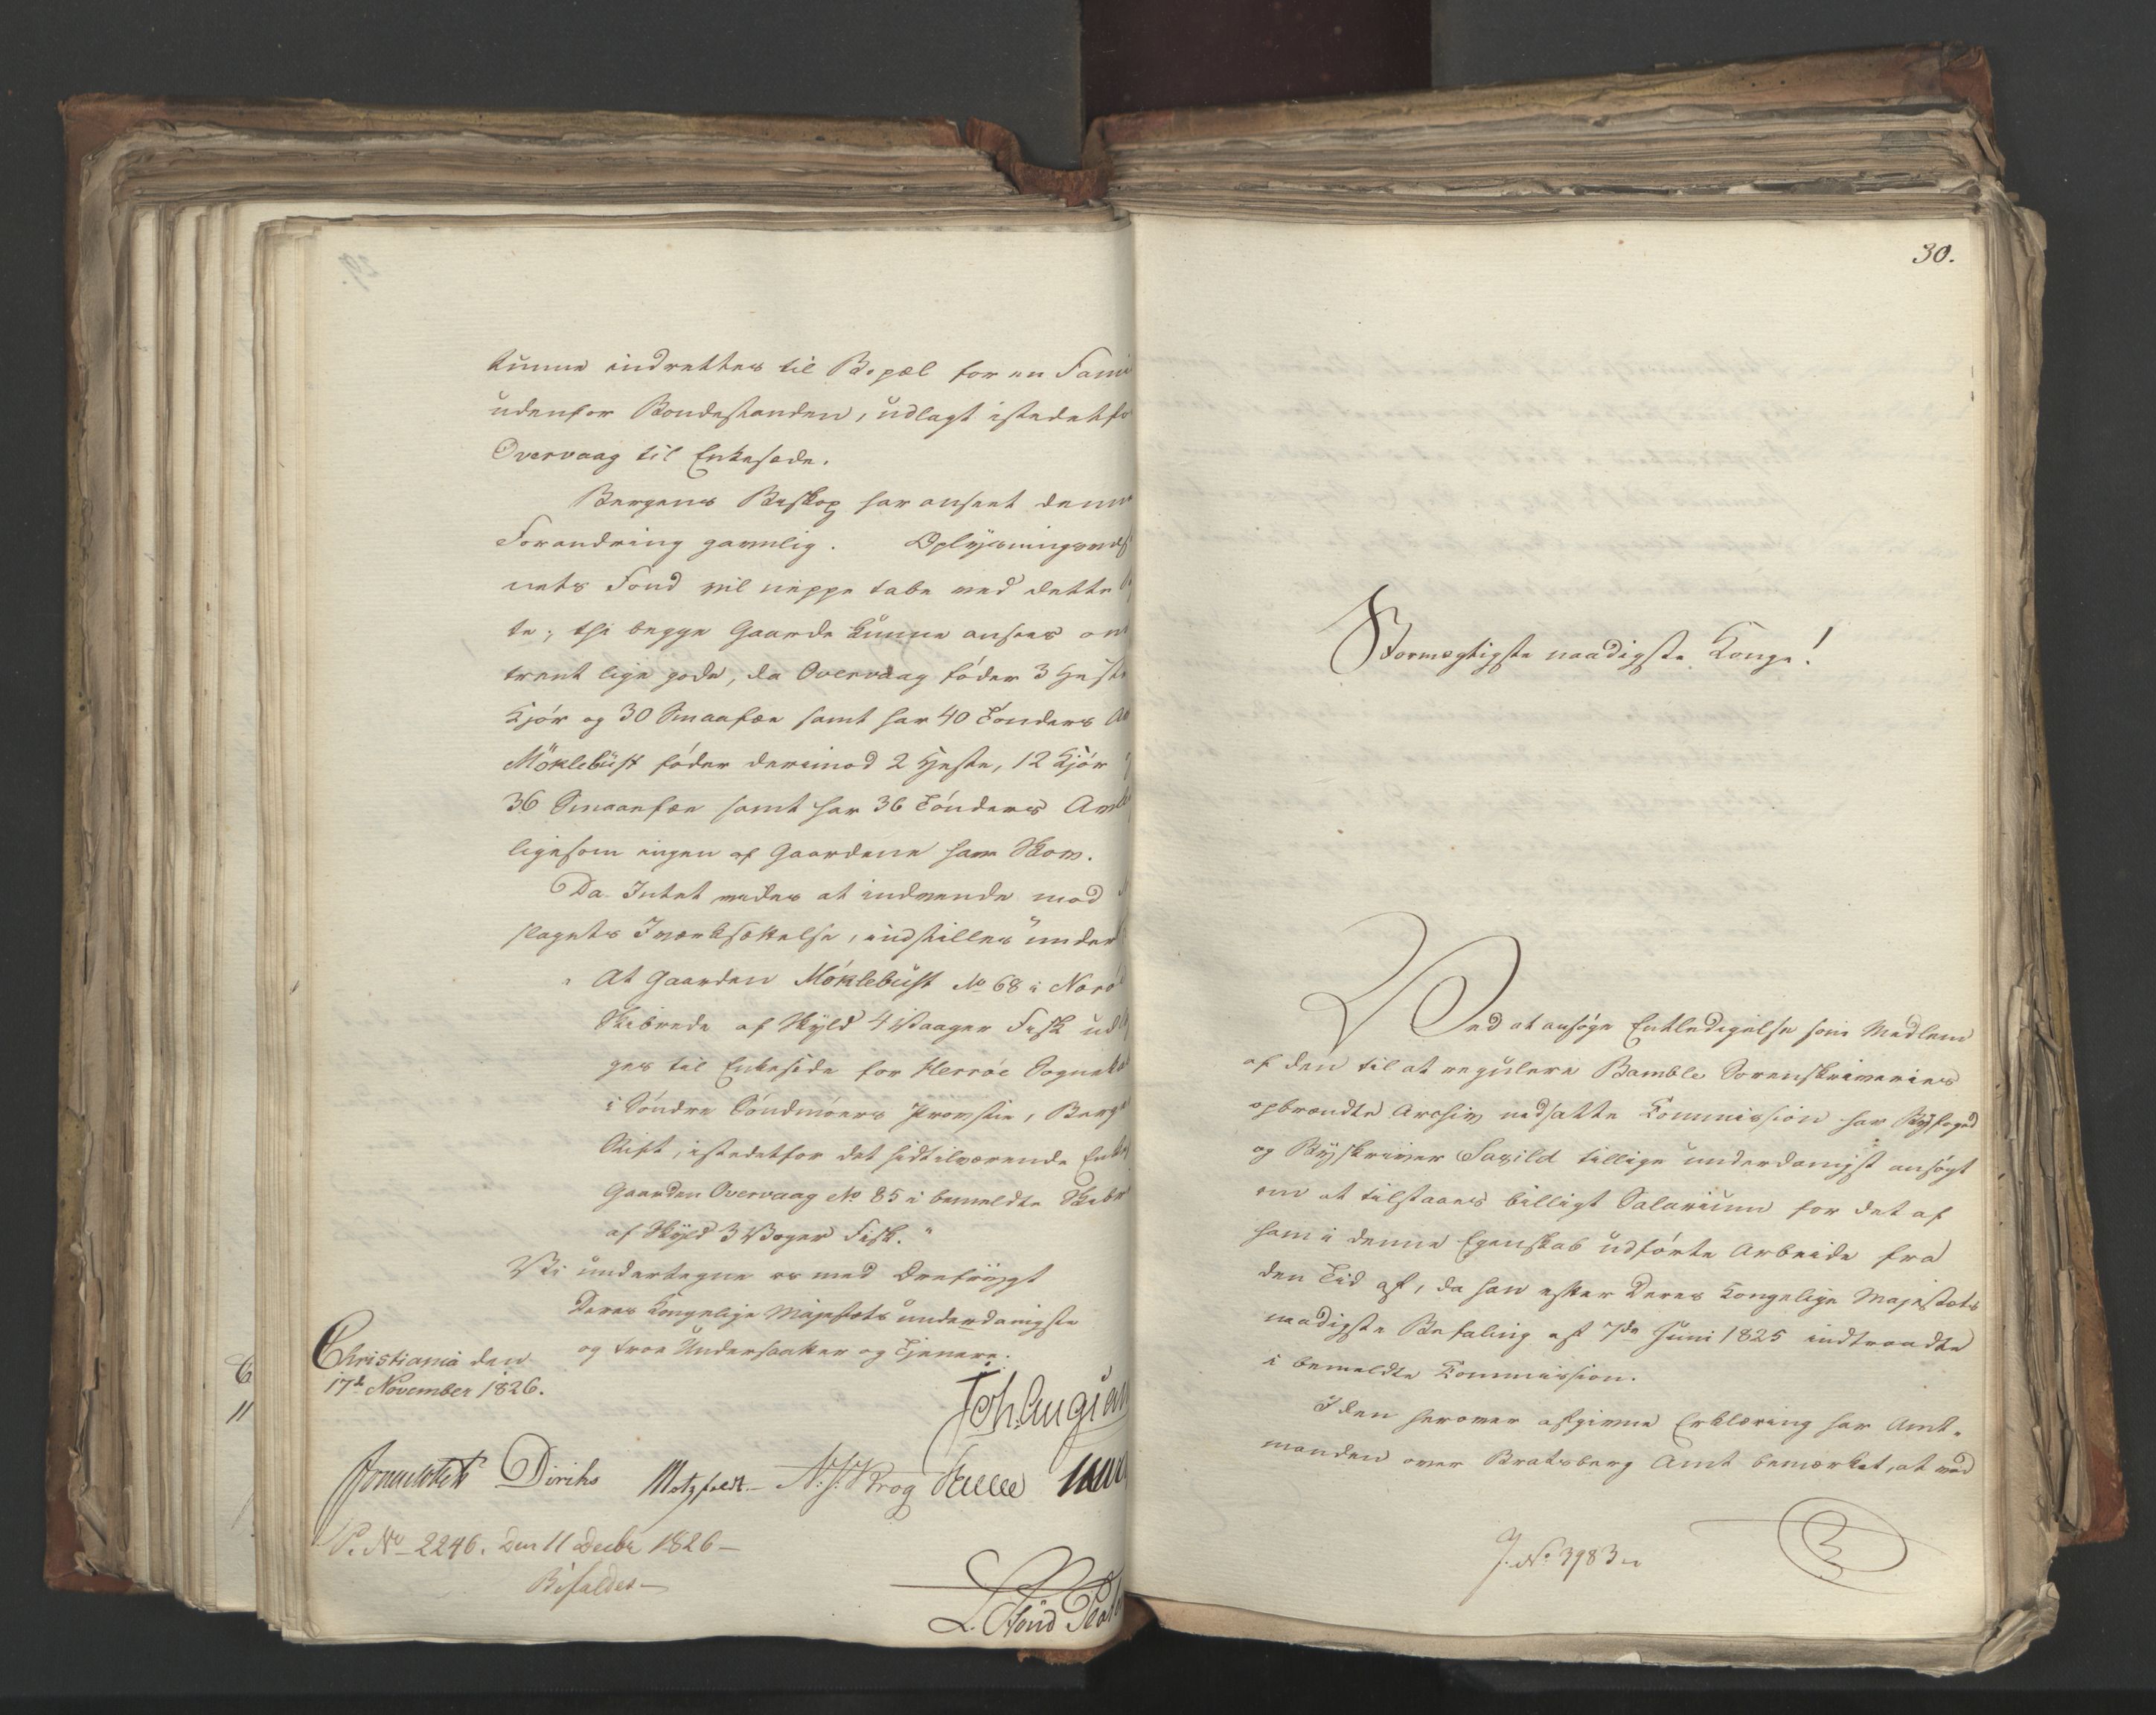 kunne indrettes til Bopæl for en Fami
udenfor Bondestanden, udlagt istedetfo
Overvaag til Enkesæde.
Bergens Biskop har anseet denne
Forandring gavnlig. Oplysningsvæs
nets Fond vil neppe tabe ved dette
te; thi begge Gaarde kunne ansees om
trent lige gode, da Overvaag föder 3 Heste
Kjör og 30 Smaafæe samt har 40 Tönders
Möklebust föder derimod 2 Heste, 12 Kjör
36 Smaafæe samt har 36 Tönders Avl
ligesom ingen af Gaardene have Skov.
Da Intet vides at indvende mod
slagets Iværksættelse, indstilles under
"At Gaarden Möklebust No 68 i
Skibrede af Skyld 4 Vaager Fisk udl
ges til Enkesæde for Herröe Sognek
i Söndre Söndmöers Provstie, Berg
Stift, istedetfor det hidtilværende Enk
Gaarden Overvaag No 85 i bemeldte Skib
af Skyld 3 Voger Fisk."
Vi undertegne os med Drefrygt
Deres Kongelige Majestæts underdanigste
og troe Undersaatter og Tjenere.
Christiania den
17de November 1826.
Diriks Motzfeldt N. J. Krog
P. No 2246. Den 11 Decbr 1826
Bifaldes
30.
Stormægtigste naadigste Konge!
Ved at ansöge Entledigelse som Medlem
af den til at regulere Bamble Sorenskriveries
opbrændte Archiv nedsatte Commission har Byefoged
og Byskriver Saxild tillige underdanigst ansögt
om at tilstaaes billigt Salarium for det af
ham i denne Egenskab udförte Arbeide fra
den Tid af, da han efter Deres Kongelige Majestæts
naadigste Befaling af 7de Juni 1825 indtraadte
i bemeldte Commission.
I den herover afgivne Erklæring har Amt-
manden over Bratsberg Amt bemærket, at ved
J. No 3983